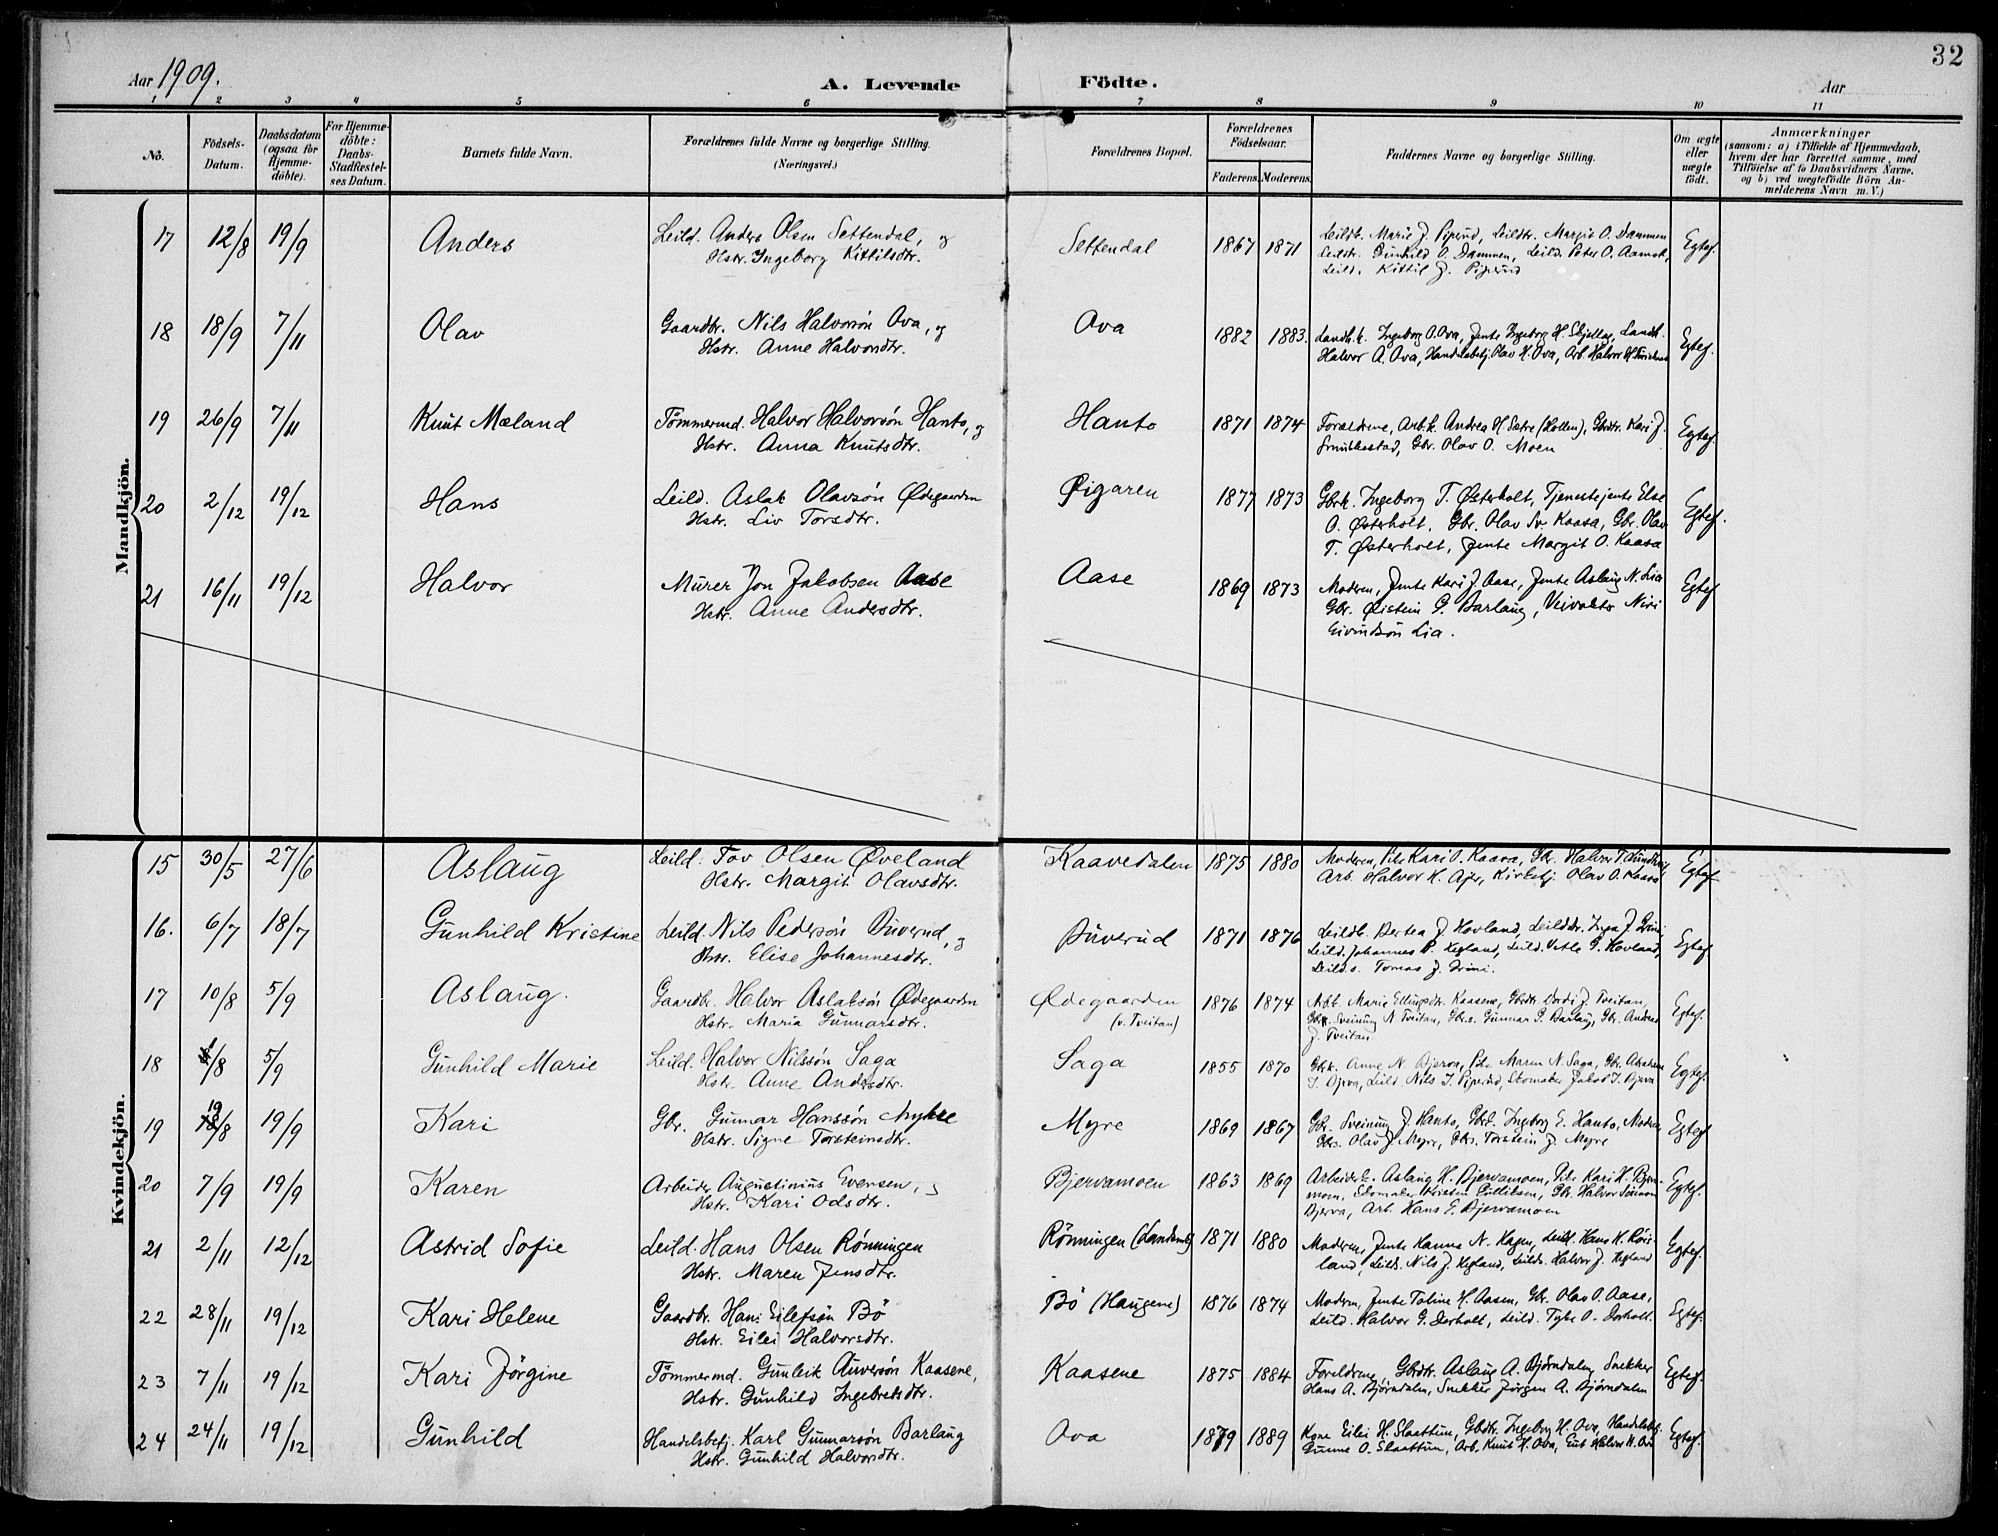 32
Aar 1909. A. Levende Födte. Aar
1 2 3 4 5 6 7 8 9 10 11
No. Födsels-Datum. Daabsdatum (ogsaa for Hjemmedöbte). For Hjemmedöbte: Daabs-Stadfæstelses Datum. Barnets fulde Navn. Forældrenes fulde Navne og borgerlige Stilling. (Næringsvei.) Forældrenes Bopæl. Forældrenes Födselsaar. Faderens. Moderens. Faddernes Navne og borgerlige Stilling. Om ægte eller uægte födt. Anmærkninger (saasom: a) i Tilfælde af Hjemmedaab, hvem der har forrettet samme, med Tilföielse af to Daabsvidners Navne, og b) ved uægtefödte Börn Anmelderens Navn m. V.)
Mandkjön.
17 12/8 19/9 Anders Leild. Anders Olsen Settendal, og Settendal 1867 1871 Leildk. Marie J. Piperud, Leildtr. Margit O. Dammen Egtef.
Hstr. Ingeborg Kittilsdtr. Leildtr. Gunhild O. Dammen, Leild. Peter O. Aamot,
Leild. Kittil J. Piperud
18 18/9 7/11 Olav Gaardbr. Nils Halvorsön Ova, og Ova 1882 1883. Landh.k. Ingeborg O. Ova, Jente Ingeborg H. Skjelbu, Landh. Egtef.
Hstr. Anne Halvorsdtr. Halvor A. Ova, Handelsbetj. Olav H. Ova, Arb. Halvor H.
19 26/9 7/11 Knut Mæland Tömmermd. Halvor Halvorsön Hanto, og Hanto 1871 1874 Forældrene, Arb.k. Andrea H. Sætre (Hollen), Gbrdtr. Kari J. Egtef.
Hstr. Anna Knutsdtr. Gbr. Olav O. Moen
20 2/12 19/12 Hans Leild. Aslak Olavsön Ødegaarden Øigaren 1877 1873 Gbrk. Ingeborg T. Østerholt, Tjenestejente Else Egtef.
Hstr. Liv Torsdtr. O. Østerholt, Gbr. Olav Sv. Kaasa, Gbr. Olav
T. Østerholt, Jente Margit O. Kaasa
21 16/11 19/12 Halvor Murer Jon Jakobsen Aase Aase 1869 1873 Moderen, Jente Kari J. Aase, Jente Aslaug N. Lia Egtef
Hstr. Anne Andersdtr. Gbr. Øistein G. Barlaug, Veivokter Niri
Eivindsön Lia.
Kvindekjön.
15 30/5 27/6 Aslaug Leild. Tov Olsen Øveland Kaavedalen 1875 1880 Moderen, Pike Kari O. Kaasa, Gbr. Halvor T. Egtef
Hstr. Margit Olavsdtr. Arb. Halvor H. Ajer, Kirkebj. Olav O. Kaasa
16. 6/7 18/7 Gunhild Kristine Leild. Nils Pedersön Buverud, og Buverud 1871 1876 Leildk. Bertea J. Hovland, Leilddtr. Inga J. Egtef
Hstr. Elise Johannesdtr. Leild. Johannes P. Hegland, Leild. Vetle G. Hovland,
Leilds. Tomas J.
17 10/8 5/9 Aslaug. Gaardbr. Halvor Aslaksön Ødegaarden Ødegaarden 1876 1874 Marie Ellingsdtr. Kaasene, Gbrdtr. Dordi J. Tveitan, Egtef.
Hstr. Maria Gunnarsdtr. (v. Tveitan) Gbr. Sveinung N. Tveitan, Gbr.s. Gunnar G. Barlaug, Gbr. Andreas
J. Tveitan
18 /8 5/9 Gunhild Marie Leild. Halvor Nilssön Saga Saga 1855 1870 Gbrk. Anne N. Bjerva, Pike Maren N. Saga, Gbr. Abraham Egtef.
Hstr. Anne Andersdtr. Leild. Nils J. Piperud, Skomaker Jakob J. Bjerva
19 19/8 19/9 Kari Gbr. Gunnar Hanssön Myhre Myre 1869 1867 Gbr. Sveinung J. Hanto, Ingeborg E. Hanto, Moderen, Egtef
Hstr. Signe Torsteinsdtr. Gbrs. Olav J. Myre, Gbrs. Torstein J. Myre
20 7/9 19/9 Karen Arbeider Augustinius Evensen, og Bjervamoen 1863 1869 Arbeiderk. Aslaug H. Bjervamoen, Pike Kari H. Egtef.
Hstr. Kari Odsdtr. Skomaker Kristen Gulliksen, Gbr. Halvor
Bjerva, Arb. Hans E. Bjervamoen
21 2/11 12/12 Astrid Sofie Leild. Hans Olsen Rönningen Rönningen 1871 1880 Moderen, Jente Hanna N. Hagen, Leild. Hans H. Egtef.
Hstr. Maren Jensdtr. land, Leilds. Nils J. Hegland, Leilds. Halvor J. Hegland
22 28/11 19/12 Kari Helene Gaardbr. Hans Eilefsön Bö Bö (Haugene) 1876 1874 Moderen, Jente Toline H. Aasen, Gbr. Olav O. Aase, Egtef.
Hstr. Eilei Halvorsdtr. Leild. Halvor G. Dorholt, Leild. Tyke O. Dorholt.
23 7/11 19/12 Kari Jörgine Tömmermd. Gunleik Auversön Kaasene, Kaasene 1875 1884 Foreldrene, Gbrdtr. Aslaug A. Björndalen, Snekker Egtef.
Hstr. Gunhild Ingebretsdtr. Hans A. Björndalen, Snekker Jörgen A. Björndalen
24 24/11 19/12 Gunhild Handelsbetj. Karl Gunnarsön Barlaug Ova 1879 1889 Kone Eilei H. Slaattun, Gbdtr. Ingeborg H. Ova, Handelsbetj. Egtef.
Hstr. Gunhild Halvorsdtr. O. Slaattun, Arb. Knut H. Ova, Gut Halvor H. Ova